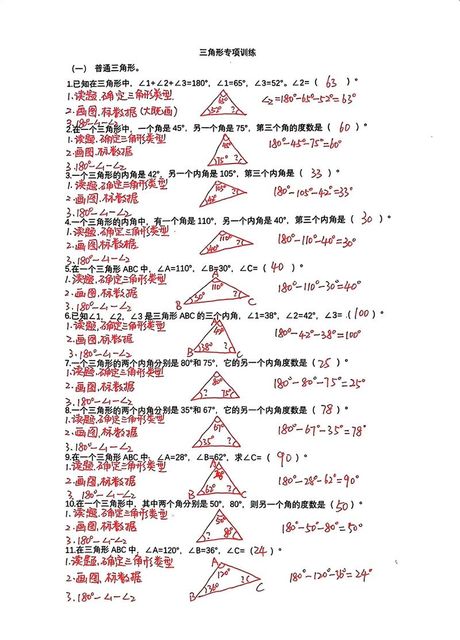 三角形专项训练
(一) 普通三角形。
1.已知在三角形中，∠1+∠2+∠3=180°，∠1=65°，∠3=52°。∠2=（ 63 ）°
1.读题，确定三角形类型
2.画图，标数据（大概画）
3.180°-∠1-∠2
65° 52° ?
∠2=180°-65°-52°=63°
2.在一个三角形中，一个角是 45°，另一个角是 75°，第三个角的度数是（ 60 ）°
1.读题，确定三角形类型
2.画图，标数据
3.180°-∠1-∠2
45° 75° ?
180°-45°-75°=60°
3.一个三角形的内角是 42°，另一个内角是 105°，第三个内角是（ 33 ）°
1.读题，确定三角形类型
2.画图，标数据
3.180°-∠1-∠2
180°-105°-42°=33°
4.一个三角形的内角中，有一个角是 110°，另一个内角是 40°，第三个内角是（ 30 ）°
1.读题，确定三角形类型
2.画图，标数据
3.180°-∠1-∠2
110° 40° ?
180°-110°-40°=30°
5.在一个三角形 ABC 中，∠A=110°，∠B=30°，∠C=（ 40 ）°
1.读题，确定三角形类型
2.画图，标数据
3.180°-∠1-∠2
A 110° B 30° ? C
180°-110°-30°=40°
6.已知∠1，∠2，∠3 是三角形 ABC 的三个内角，∠1=38°，∠2=42°，∠3=（ 100 ）°
1.读题，确定三角形类型
2.画图，标数据
3.180°-∠1-∠2
A B 38° ? C
180°-42°-38°=100°
7.一个三角形的两个内角分别是 80°和 75°，它的另一个内角度数是（ 25 ）°
1.读题，确定三角形类型
2.画图，标数据
3.180°-∠1-∠2
80° ? 75°
180°-80°-75°=25°
8.一个三角形的两个内角分别是 35°和 67°，它的另一个内角度数是（ 78 ）°
1.读题，确定三角形类型
2.画图，标数据
3.180°-∠1-∠2
67° 35° ?
180°-67°-35°=78°
9.在一个三角形 ABC 中，∠A=28°，∠B=62°，求∠C=（ 90 ）°
1.读题，确定三角形类型
2.画图，标数据
3.180°-∠1-∠2
A 28° B 62° ? C
180°-28°-62°=90°
10.在一个三角形中，其中两个角分别是 50°，80°，则另一个角的度数是（ 50 ）°
1.读题，确定三角形类型
2.画图，标数据
3.180°-∠1-∠2
50° ? 80°
180°-50°-80°=50°
11.在三角形 ABC 中，∠A=120°，∠B=36°，∠C=（ 24 ）°
1.读题，确定三角形类型
2.画图，标数据
3.180°-∠1-∠2
A 120° B 36° ? C
180°-120°-36°=24°